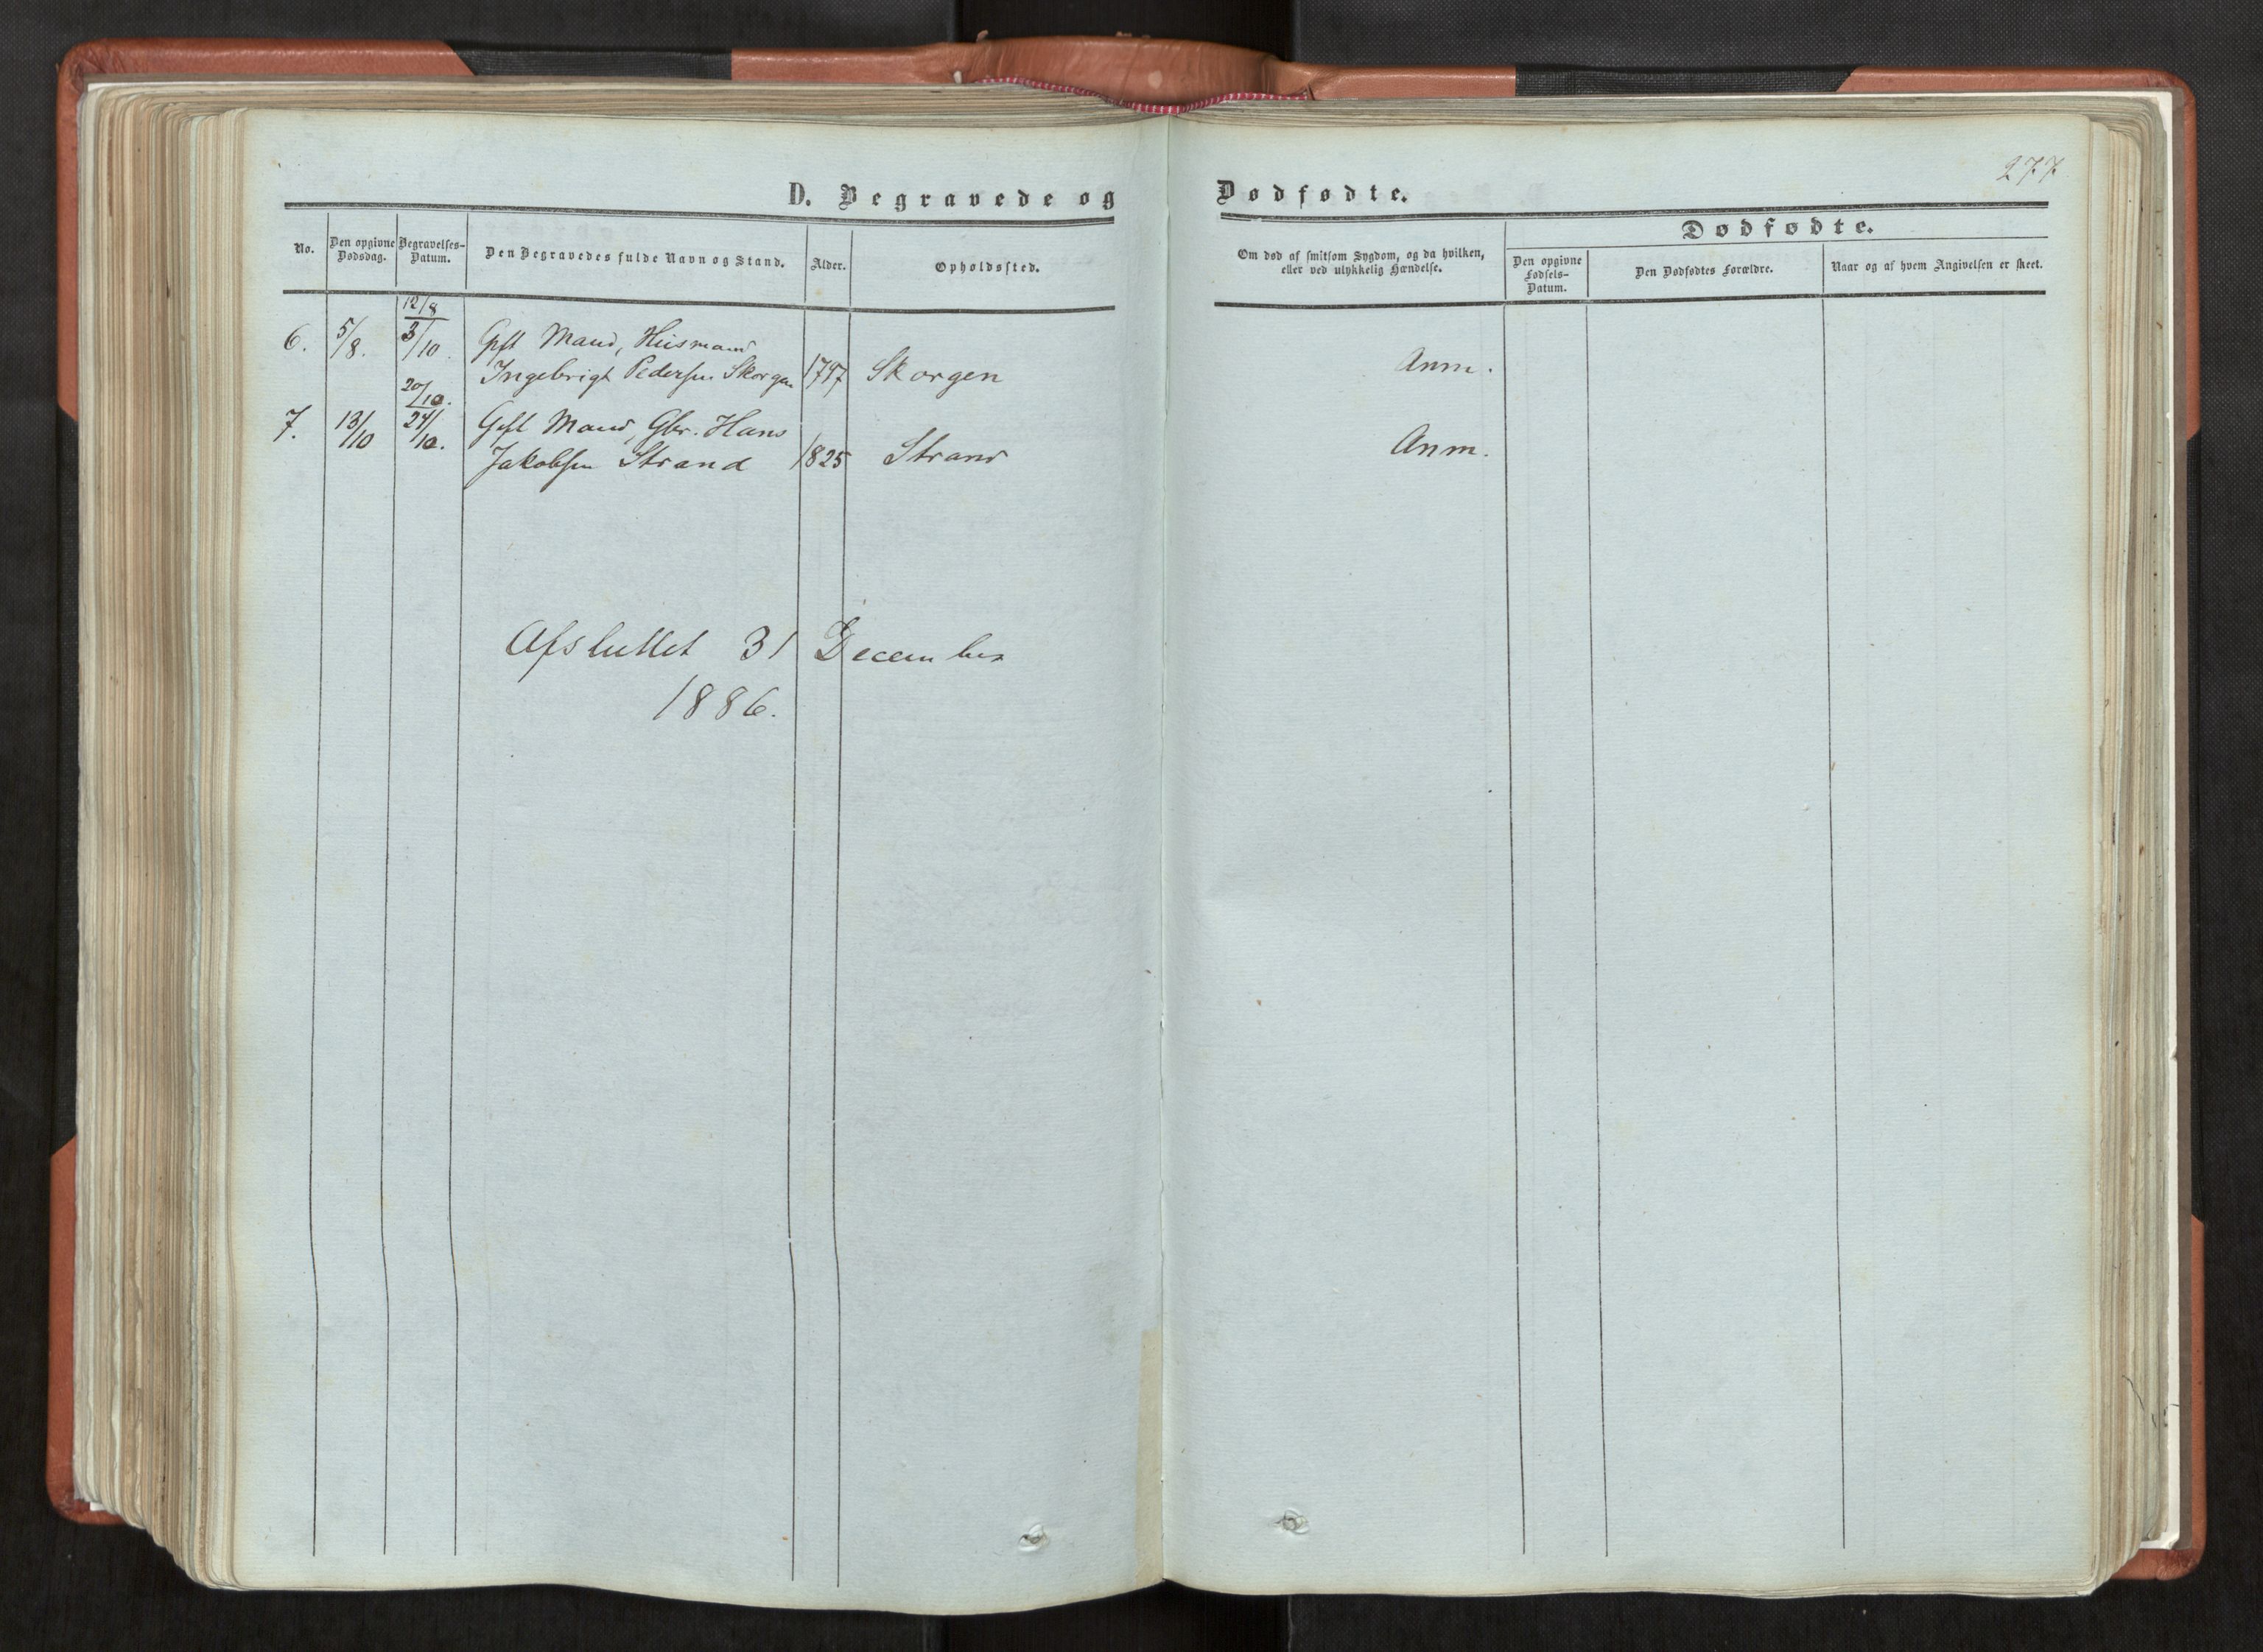 277
D. Begravede og Dødfødte.
No.
Den opgivne Dødsdag.
Begravelses-Datum.
Den Begravedes fulde Navn og Stand.
Alder.
Opholdssted.
Om død af smitsom Sygdom, og da hvilken, eller ved ulykkelig Hændelse.
Dødfødte.
Den opgivne Fødsels-Datum.
Den Dødfødtes Forældre.
Naar og af hvem Angivelsen er skeet.
12/8
6. 5/8. 3/10. Gift Mand, Husmand
Ingebrigt Pedersen Skorgen Skorgen Anm.
20/10.
7. 13/10 24/10. Gift Mand, Gbr. Hans
Jakobsen Strand 1825 Strand Anm.
Afsluttet 31 December
1886.